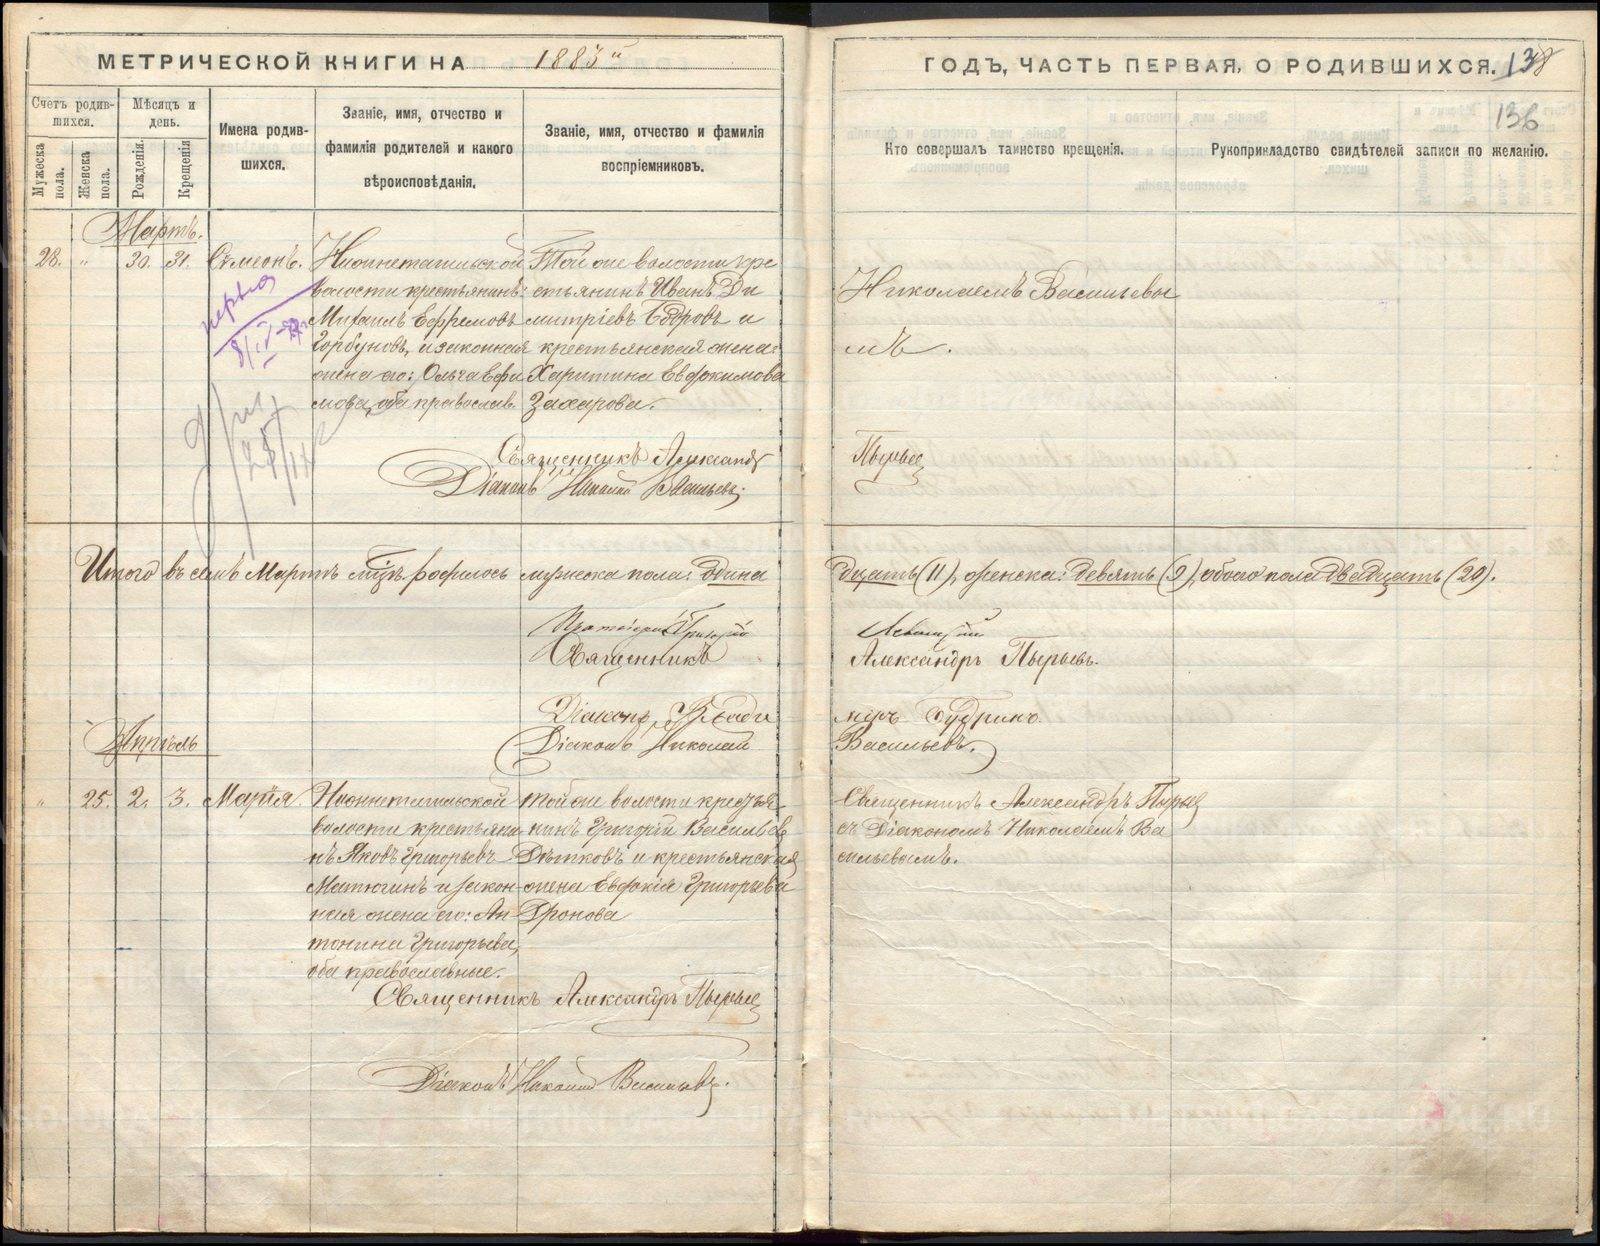 МЕТРИЧЕСКОЙ КНИГИ НА 1885 й
ГОДЪ, ЧАСТЬ ПЕРВАЯ, О РОДИВШИХСЯ. 138
136
Счетъ родив-
шихся.
Мужеска пола.
Женска пола.
Мѣсяцъ и
день.
Рожденія.
Крещенія
Имена родив-
шихся.
Званіе, имя, отчество и
фамилія родителей и какого
вѣроисповѣданія.
Званіе, имя, отчество и фамилія
воспріемниковъ.
Кто совершалъ таинство крещенія.
Рукоприкладство свидѣтелей записи по желанію.
Мартъ.
28. " 30. 31. Сѵмеонъ.
Нижнетагильской
волости крестьянинъ:
Михаилъ Ефремовъ
Горбуновъ, и законная
жена его: Ольга Ефи
мова, оба православ.
Той же волости кре
стьянинъ Иванъ Ди
митріевъ Бдровъ и
крестьянская жена:
Харитина Евдокимова
Захарова.
Николаемъ Васильевы
мъ.
Священникъ Александръ
Пырьев
Діаконъ Николай Васильевъ.
Итого въ семъ Мартѣ мцѣ родилось мужеска пола: одина
дцать (11), женска: девять (9), обоего пола двадцать (20).
Протоіерей Григорій
Священникъ
Александръ Пырьевъ.
Діаконъ Влади
міръ Будринъ.
Діаконъ Николай
Васильевъ.
Апрѣль
" 25. 2. 3. Марія.
Нижнетагильской
волости крестьяни
нъ Яковъ Григорьевъ
Матюгинъ и закон
ная жена его: Ан
тонина Григорьева,
оба православные.
той же волости крестья
нинъ Григорій Васильевъ
Дѣтковъ и крестьянская
жена Евдокія Григорьева
Дронова
Священникъ Александръ Пырьев
съ Діакономъ Николаемъ Ва
сильевымъ.
Священникъ Александръ Пырьев
Діаконъ Николай Васильевъ.